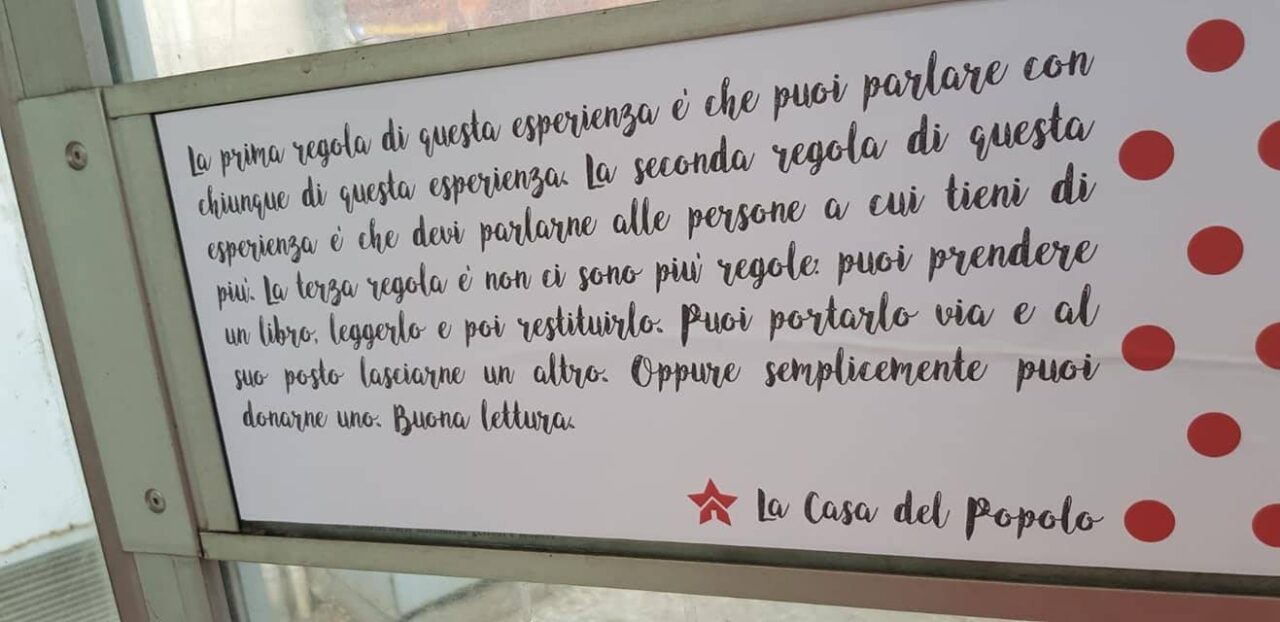 La prima regola di questa esperienza é che puoi parlare con
chiunque di questa esperienza. La seconda regola di questa
esperienza é che devi parlarne alle persone a cui tieni di
piú. La terza regola é non ci sono piú regole: puoi prendere
un libro, leggerlo e poi restituirlo. Puoi portarlo via e al
suo posto lasciarne un altro. Oppure semplicemente puoi
donarne uno. Buona lettura.
La Casa del Popolo